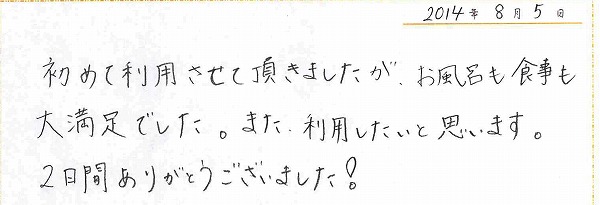 2014年 8月 5日
初めて利用させて頂きましたが、お風呂も食事も
大満足でした。また、利用したいと思います。
2日間ありがとうございました!